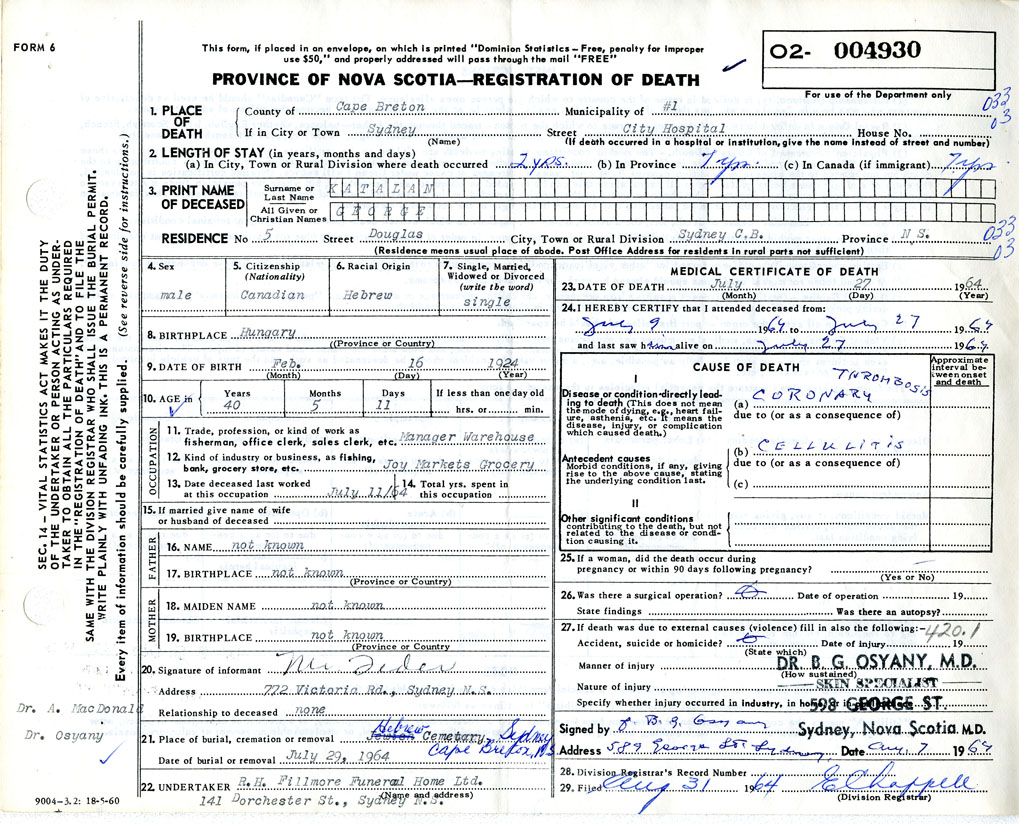 FORM 6
This form, if placed in an envelope, on which is printed "Dominion Statistics – Free, penalty for improper
use $50," and properly addressed will pass through the mail "FREE"
PROVINCE OF NOVA SCOTIA—REGISTRATION OF DEATH
02- 004930
For use of the Department only
033
03
SEC. 14 – VITAL STATISTICS ACT MAKES IT THE DUTY
OF THE UNDERTAKER OR PERSON ACTING AS UNDER-
TAKER TO OBTAIN ALL THE PARTICULARS REQUIRED
IN THE "REGISTRATION OF DEATH" AND TO FILE THE
SAME WITH THE DIVISION REGISTRAR WHO SHALL ISSUE THE BURIAL PERMIT.
WRITE PLAINLY WITH UNFADING INK. THIS IS A PERMANENT RECORD.
Every item of information should be carefully supplied. (See reverse side for instructions.)
1. PLACE OF DEATH
County of Cape Breton Municipality of #1
If in City or Town Sydney Street City Hospital House No.
(Name) (If death occurred in a hospital or institution, give the name instead of street and number)
2. LENGTH OF STAY (in years, months and days)
(a) In City, Town or Rural Division where death occurred 7 yrs. (b) In Province 7 yrs. (c) In Canada (if immigrant) 7 yrs
3. PRINT NAME OF DECEASED
Surname or Last Name KATALAN
All Given or Christian Names GEORGE
RESIDENCE No 5 Street Douglas City, Town or Rural Division Sydney C.B. Province N.S.
033
03
(Residence means usual place of abode. Post Office Address for residents in rural parts not sufficient)
4. Sex
male
5. Citizenship
(Nationality)
Canadian
6. Racial Origin
Hebrew
7. Single, Married,
Widowed or Divorced
(write the word)
single
8. BIRTHPLACE Hungary
(Province or Country)
9. DATE OF BIRTH Feb. 16 1924
(Month) (Day) (Year)
10. AGE in
Years Months Days If less than one day old
40 5 11 hrs. or min.
OCCUPATION
11. Trade, profession, or kind of work as
fisherman, office clerk, sales clerk, etc. Manager Warehouse
12. Kind of industry or business, as fishing,
bank, grocery store, etc. Joy Markets Grocery
13. Date deceased last worked
at this occupation July 11/64
14. Total yrs. spent in
this occupation
15. If married give name of wife
or husband of deceased
FATHER
16. NAME not known
17. BIRTHPLACE not known
(Province or Country)
MOTHER
18. MAIDEN NAME not known
19. BIRTHPLACE not known
(Province or Country)
20. Signature of informant
Address 772 Victoria Rd., Sydney N.S.
Relationship to deceased none
Dr. A. MacDonald
Dr. Osyany
21. Place of burial, cremation or removal Hebrew Cemetary, Sydney
Cape Breton, N.S
Date of burial or removal July 29, 1964
22. UNDERTAKER R.H. Fillmore Funeral Home Ltd.
(Name and address)
141 Dorchester St., Sydney N.S.
9004–3.2: 18-5-60
MEDICAL CERTIFICATE OF DEATH
23. DATE OF DEATH July 27 1964
(Month) (Day) (Year)
24. I HEREBY CERTIFY that I attended deceased from:
July 9 1964 to July 27 1964
and last saw him alive on July 27 1964
CAUSE OF DEATH
Approximate
interval be-
tween onset
and death
I
Disease or condition directly lead-
ing to death (This does not mean
the mode of dying, e.g., heart fail-
ure, asthenia, etc. It means the
disease, injury, or complication
which caused death.)
THROMBOSIS
(a) CORONARY
due to (or as a consequence of)
Antecedent causes
Morbid conditions, if any, giving
rise to the above cause, stating
the underlying condition last.
(b) CELLULITIS
due to (or as a consequence of)
(c)
II
Other significant conditions
contributing to the death, but not
related to the disease or condi-
tion causing it.
25. If a woman, did the death occur during
pregnancy or within 90 days following pregnancy?
(Yes or No)
26. Was there a surgical operation? Date of operation 19
State findings Was there an autopsy?
27. If death was due to external causes (violence) fill in also the following:– 420.1
Accident, suicide or homicide? Date of injury 19
(State which)
Manner of injury
(How sustained)
DR. B. G. OSYANY, M.D.
Nature of injury
SKIN SPECIALIST
Specify whether injury occurred in industry, in
598 GEORGE ST.
Sydney, Nova Scotia
Signed by B. G. Osyany M.D.
Address 589 George St. Sydney Date Aug. 7 1964
28. Division Registrar's Record Number
29. Filed Aug 31 1964 E Chappell
(Division Registrar)